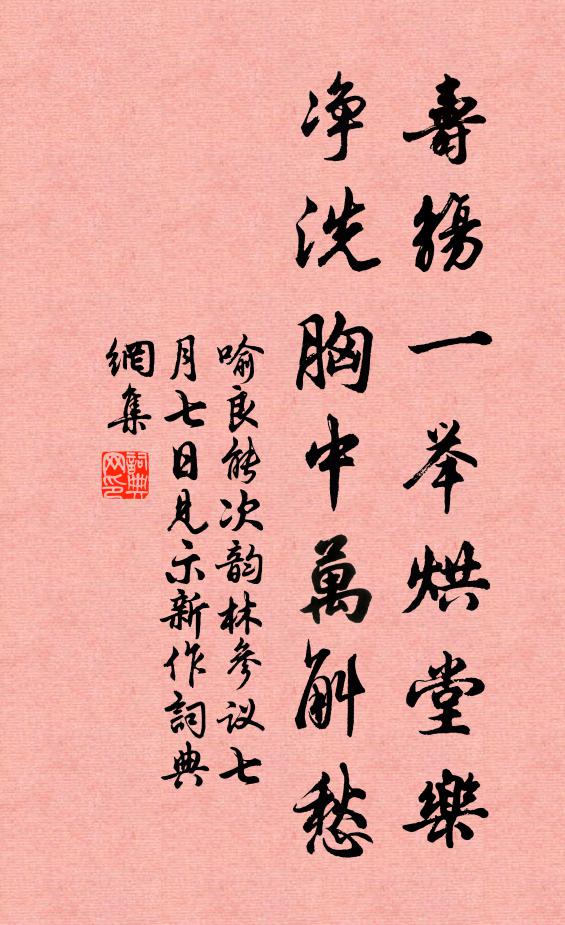 壽觴一举烘堂樂
净洗胸中萬斛愁
喻良能次韵林參议七
月七日見示新作詞典
網集
詞典
网印